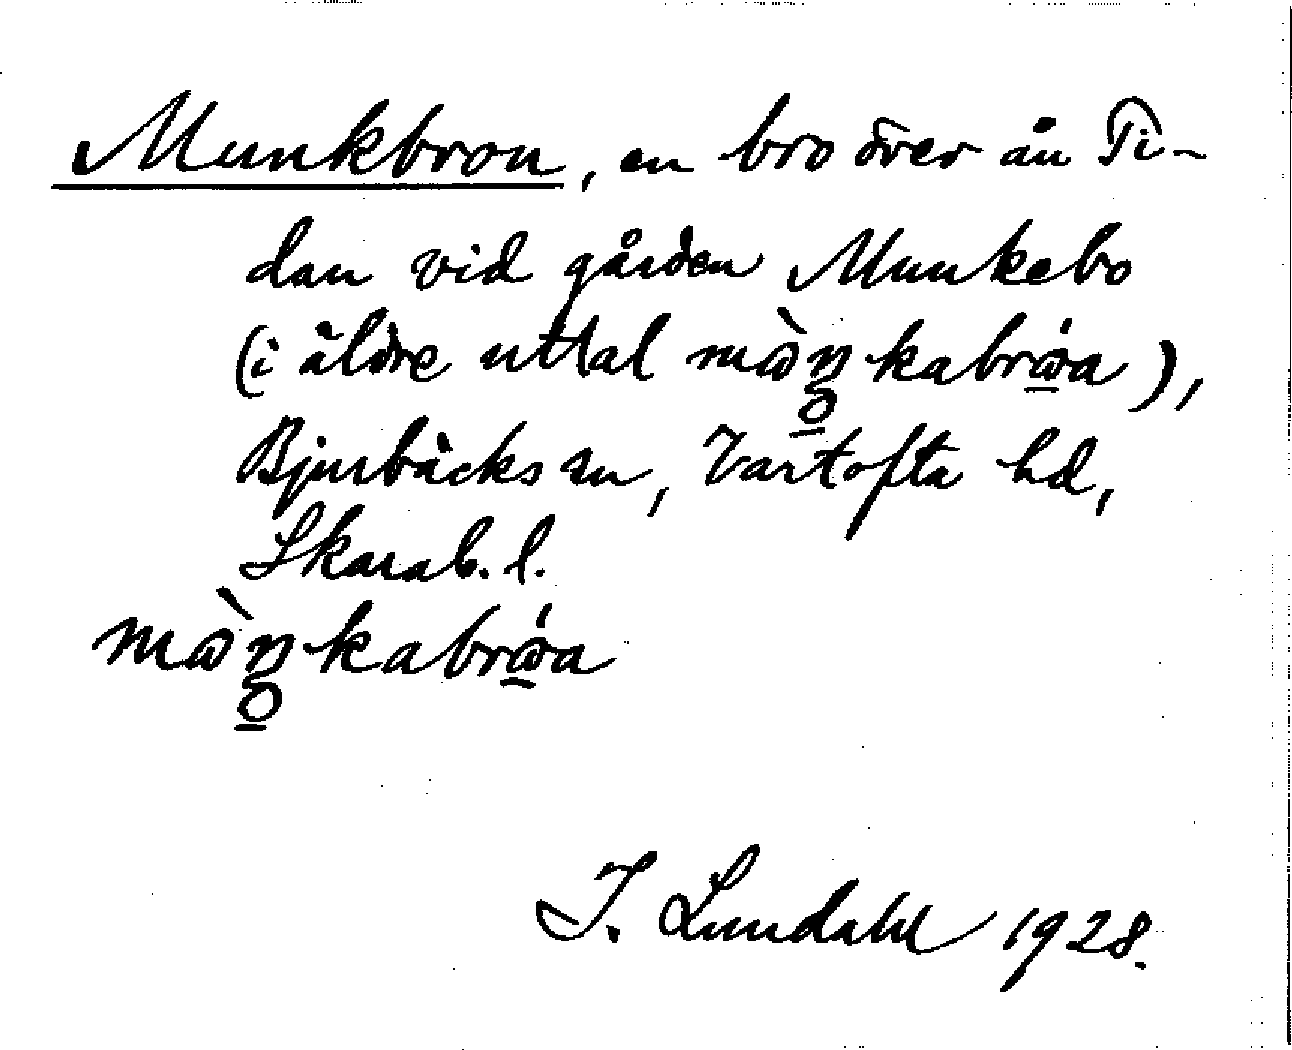 Munkbron, en bro över ån Ti-
dan vid gården Munkebo
(i äldre uttal
Bjurbäcks sn, Vartofta hd,
Skarab. l.
I. Lundahl 1928.